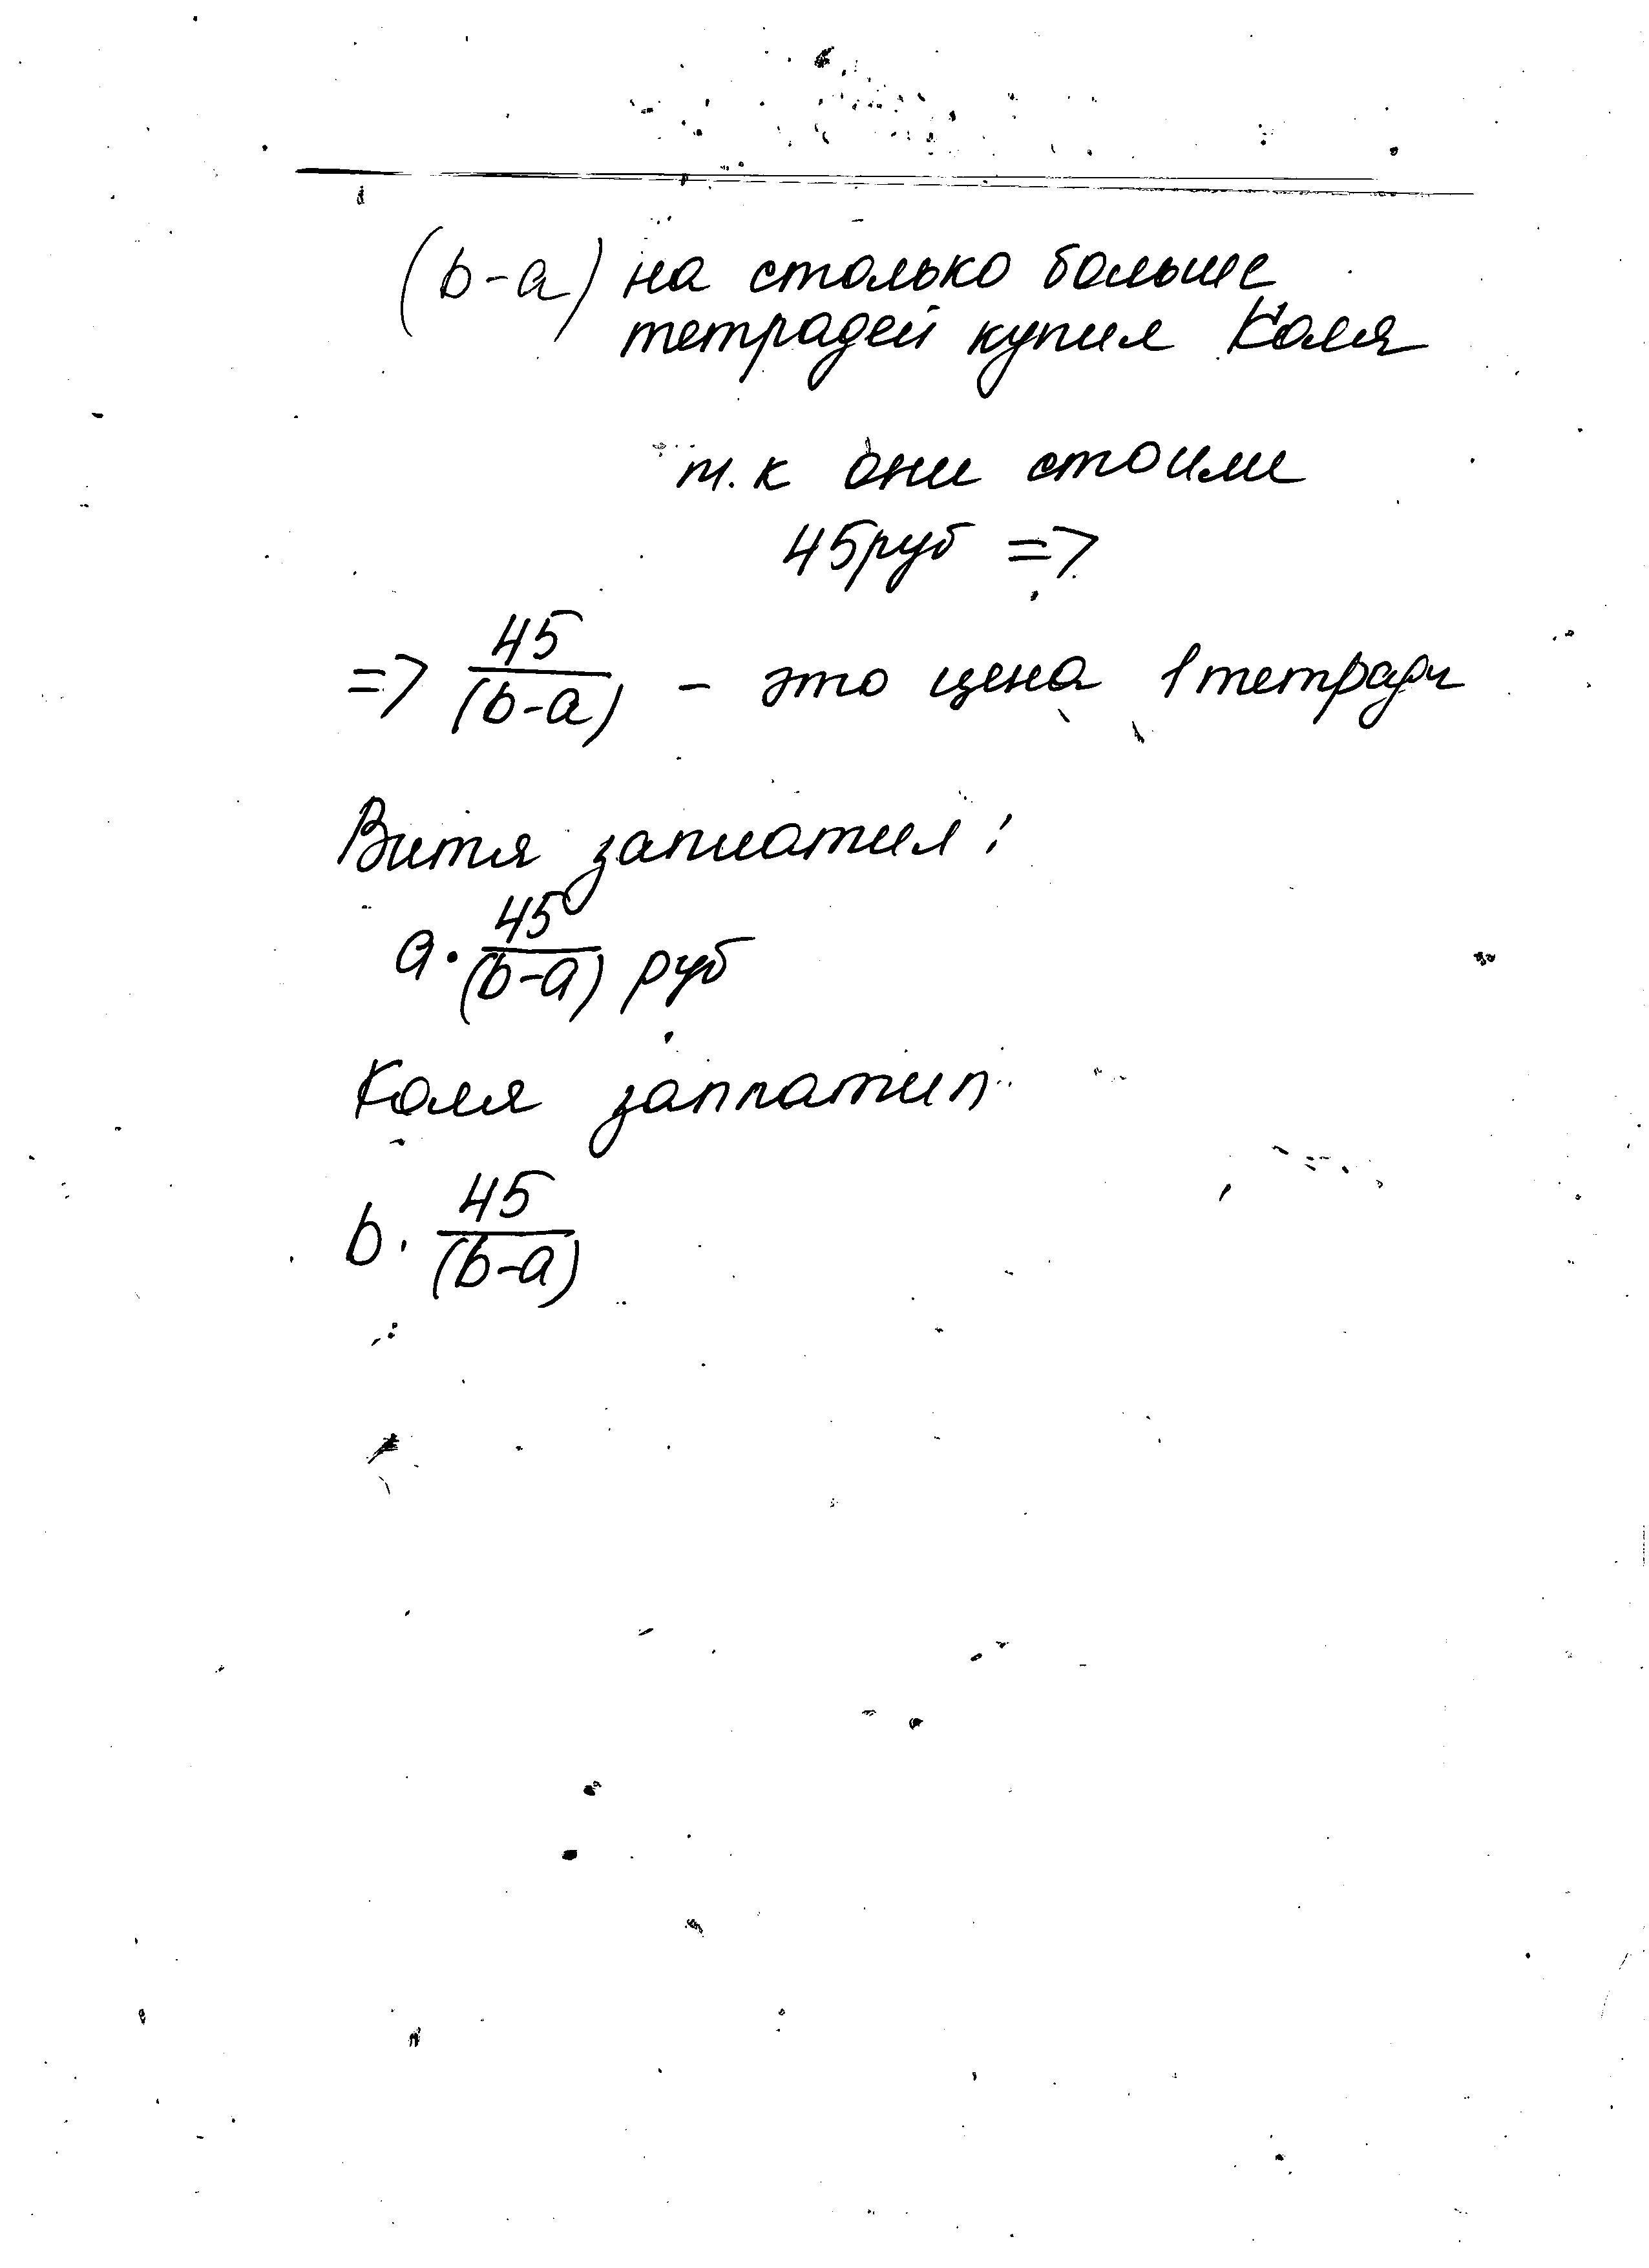 (b-a) на столько больше
тетрадей купил Коля
т.к они стоили
45руб =>
=> 45/(b-a) - это цена 1 тетради
Витя заплатил:
a·45/(b-a) руб
Коля заплатил
b·45/(b-a)